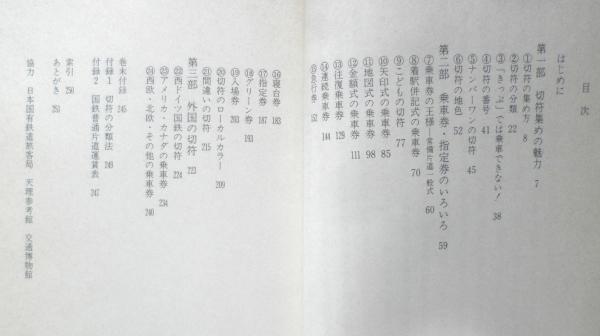 目次
はじめに
第一部 切符集めの魅力 7
①切符の集め方 8
②切符の分類 22
③「きっぷ」では乗車できない! 38
④切符の番号 41
⑤ナンバーワンの切符 45
⑥切符の地色 52
第二部 乗車券・指定券のいろいろ 59
⑦乗車券の王様—常備片道一般式 60
⑧着駅併記式の乗車券 70
⑨こどもの切符 77
⑩矢印式の乗車券 85
⑪地図式の乗車券 98
⑫金額式の乗車券 111
⑬往復乗車券 129
⑭連続乗車券 144
⑮急行券 152
⑯寝台券 183
⑰指定券 187
⑱グリーン券 193
⑲入場券 203
⑳切符のローカルカラー 209
㉑間違いの切符 215
第三部 外国の切符 223
㉒西ドイツ国鉄の切符 224
㉓アメリカ・カナダの乗車券 234
㉔西欧・北欧・その他の乗車券 240
巻末付録 245
付録1 切符の分類法 246
付録2 国鉄普通片道運賃表 247
索引 250
あとがき 253
協力 日本国有鉄道旅客局 天理参考館 交通博物館